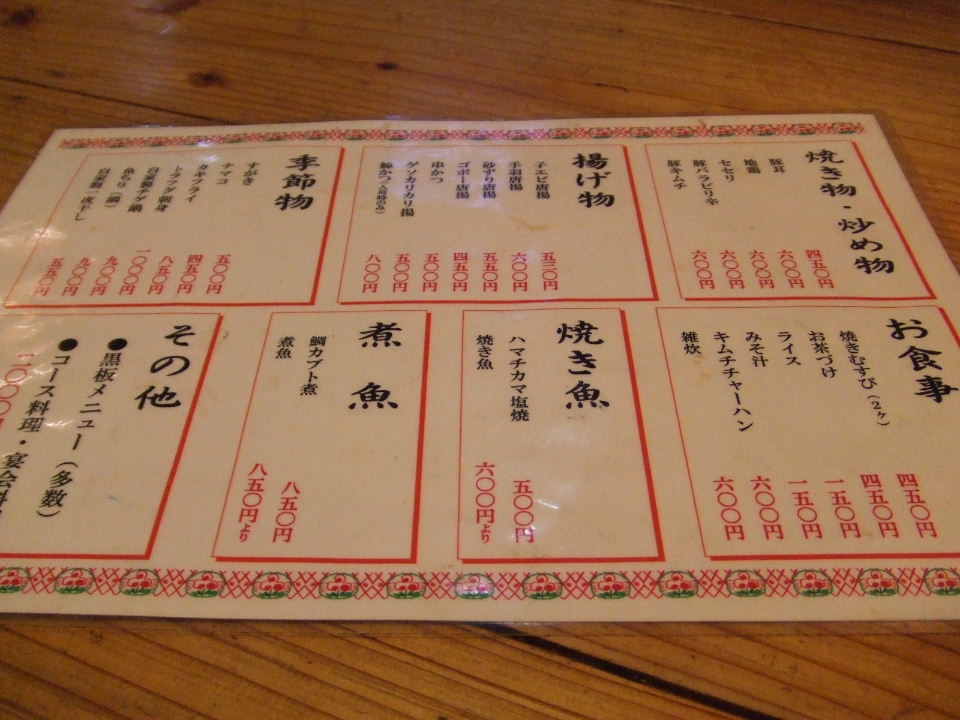 焼き物・炒め物
豚耳 四五〇円
地鶏 六〇〇円
セセリ 六〇〇円
豚バラピリ辛 六〇〇円
豚キムチ 六〇〇円
揚げ物
子エビ唐揚 五三〇円
手羽唐揚 六〇〇円
砂ずり唐揚 五五〇円
ゴボー唐揚 四五〇円
串かつ 五〇〇円
ゲソカリカリ揚 五〇〇円
鯨かつ 八〇〇円
季節物
すがき 五〇〇円
ナマコ 四五〇円
カキフライ 八五〇円
トラフグ刺身 一〇〇〇円
自家製チゲ鍋 九〇〇円
魚ちり(鍋) 九〇〇円
自家製一夜干し 五五〇円
お食事
焼きむすび(2ヶ) 四五〇円
お茶づけ 四五〇円
ライス 一五〇円
みそ汁 一五〇円
キムチチャーハン 六〇〇円
雑炊 六〇〇円
焼き魚
ハマチカマ塩焼 五〇〇円
焼き魚 六〇〇円より
煮魚
鯛カブト煮 八五〇円
煮魚 八五〇円より
その他
●黒板メニュー(多数)
●コース料理・宴会料